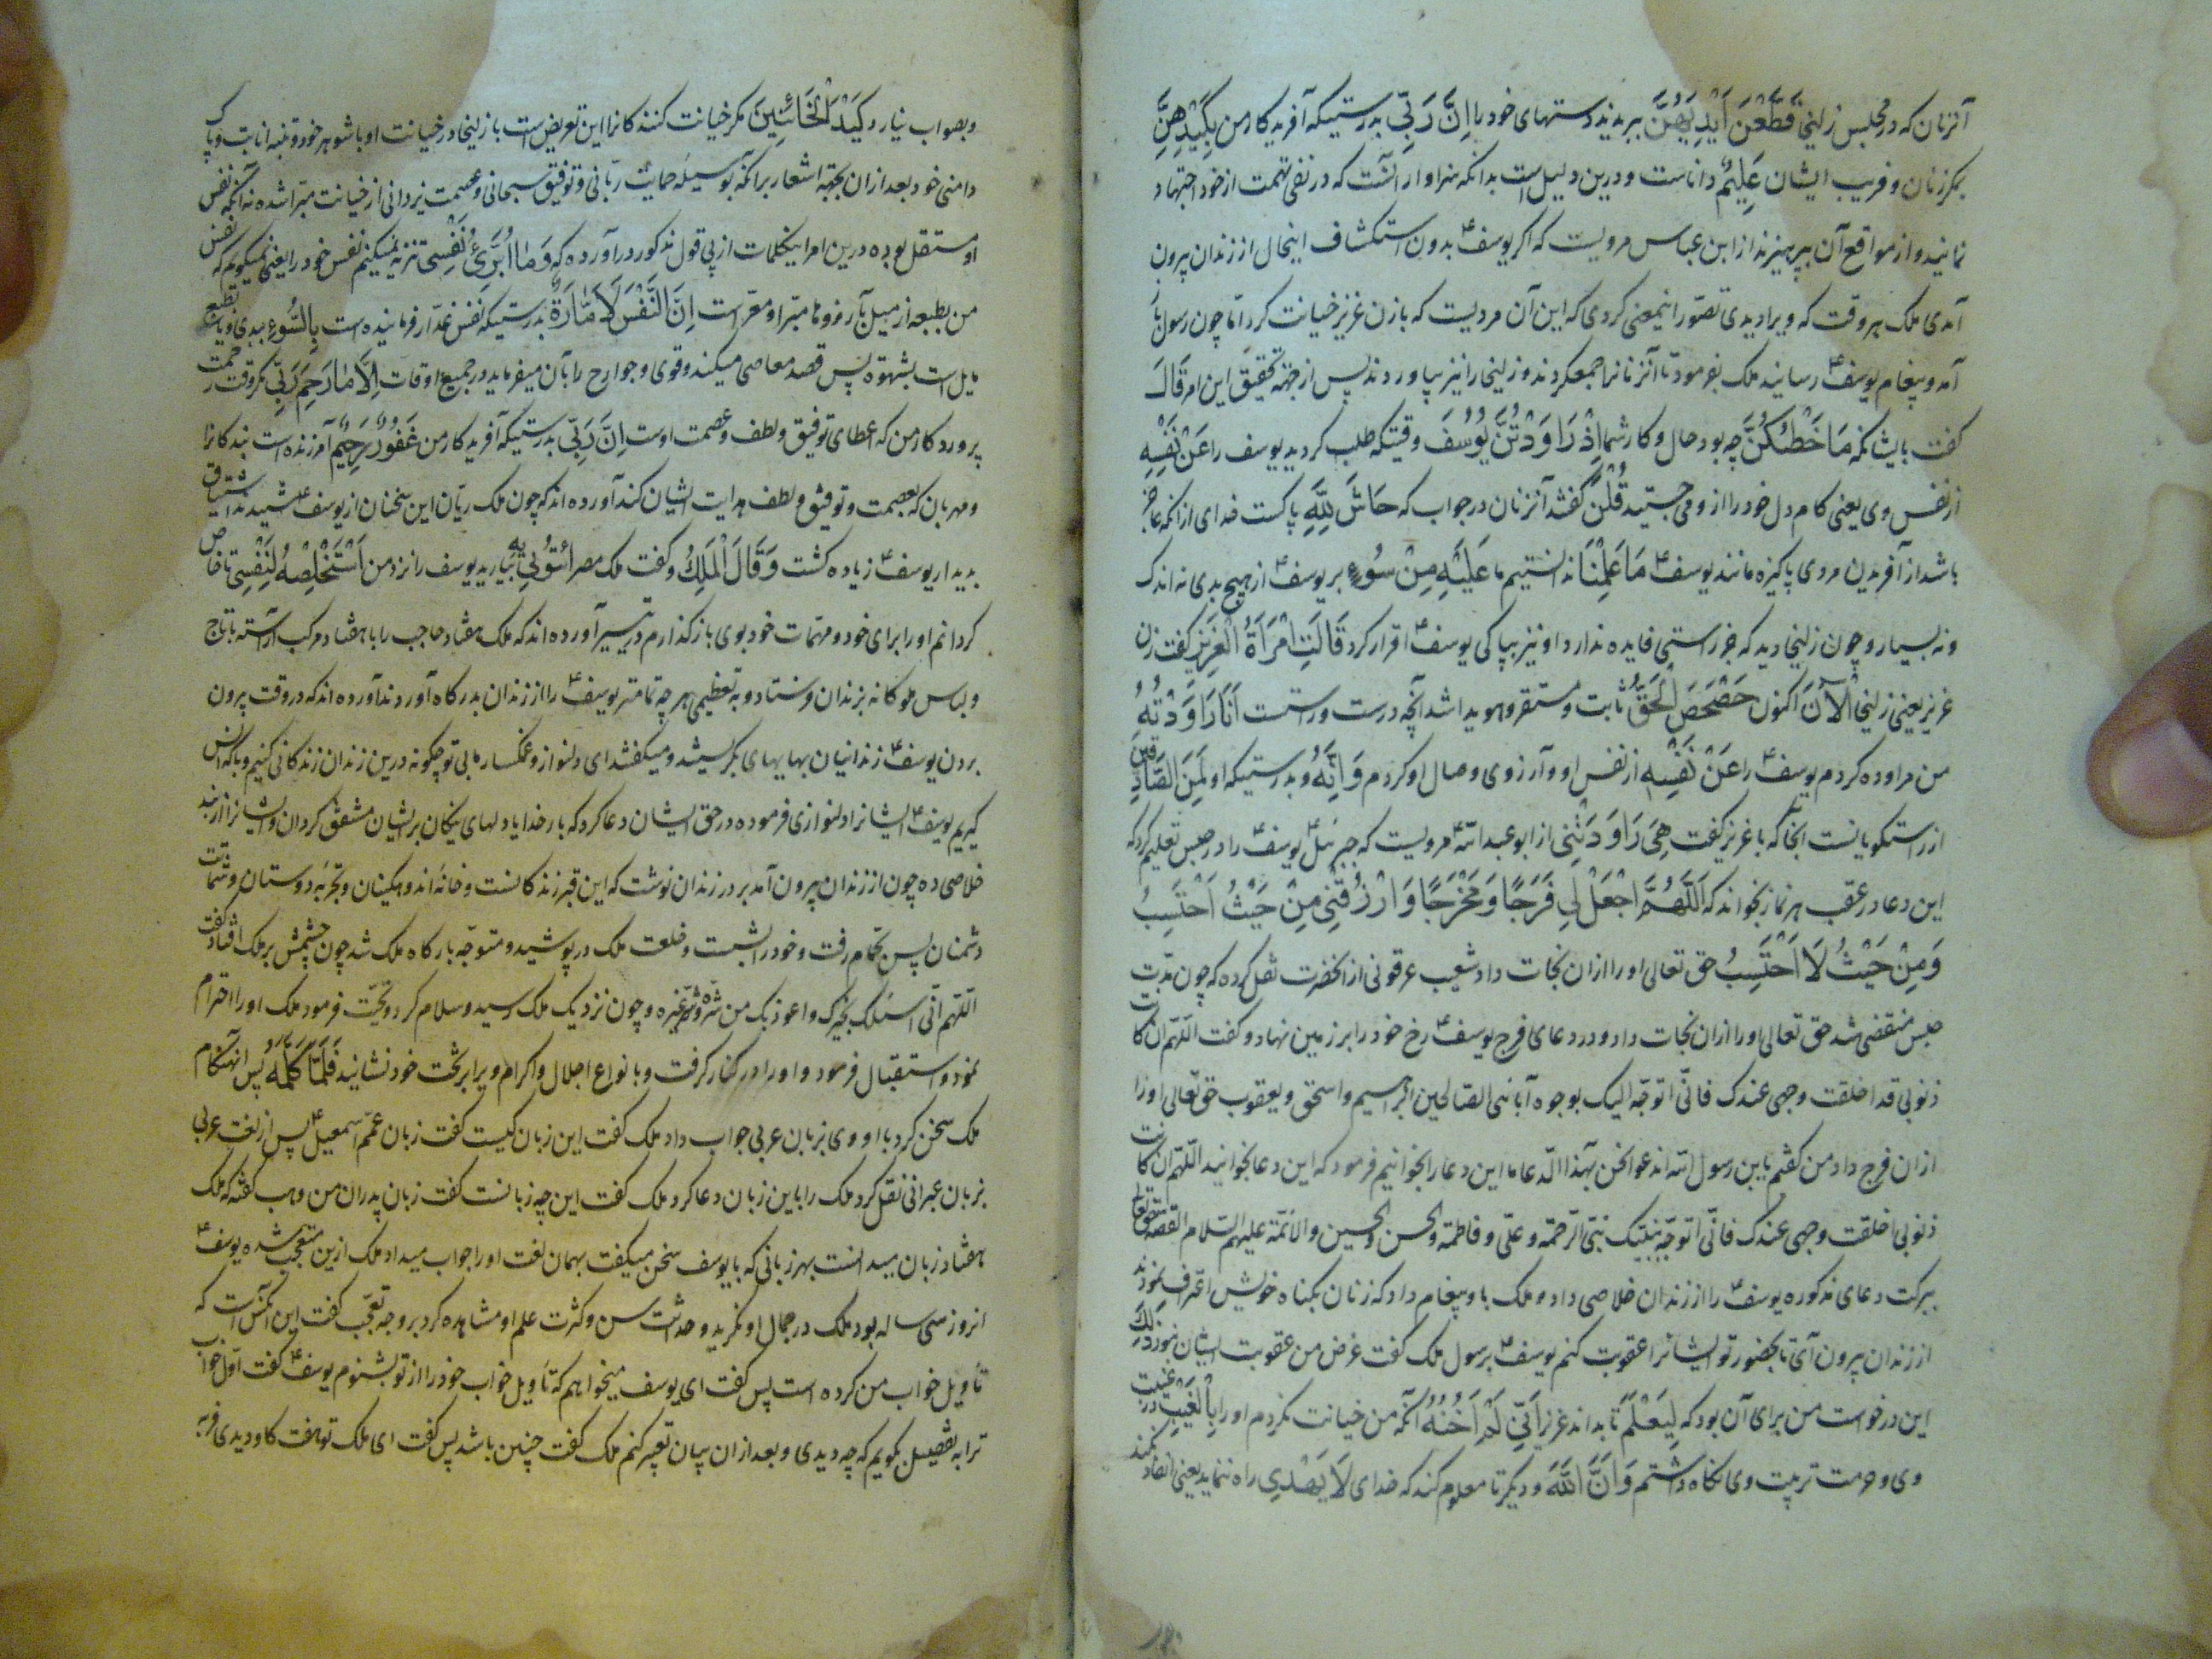 آنزنان که در مجلس زلیخا قَطَّعْنَ أَیْدِیَهُنَّ ببریدند دستهای خود را اِنَّ رَبّی بدرستیکه آفریدکار من بِکَیْدِهِنَّ
بمکر زنان و فریب ایشان عَلِیمٌ داناست و درین دلیل است بدانکه سزاوار آنست که در نفی تهمت از خود اجتهاد
نمایند و از مواقع آن بپرهیزند از ابن عباس مرویست که اکر یوسف ع بدون استکشاف اینحال از زندان بیرون
آمدی ملک هر وقت که ویرا دیدی تصور اینمعنی کردی که این آن مردیست که با زن عزیز خیانت کرد امّا چون رسول باز
آمد و پیغام یوسف ع رسانید ملک بفرمود تا آنزنانرا جمع کردند و زلیخا را نیز بیاوردند پس از جهة تحقیق این امر قَالَ
کفت بایشان که مَا خَطْبُکُنَّ چه بود حال و کار شما اِذْ رَاوَدْتُنَّ یُوسُفَ وقتیکه طلب کردید یوسف را عَنْ نَفْسِهِ
از نفس وی یعنی کام دل خود را از و می جستید قُلْنَ کفتند آنزنان در جواب که حَاشَ لِلّٰهِ پاکست خدای از آنکه عاجز
باشد از آفریدن مردی پاکیزه مانند یوسف ع مَا عَلِمْنَا ندانستیم ما عَلَیْهِ مِنْ سُوءٍ بر یوسف ع از هیچ بدی نه اندک
و نه بسیار و چون زلیخا دید که جز راستی فایده ندارد او نیز بپاکی یوسف ع اقرار کرد قَالَتِ امْرَأَةُ الْعَزِیزِ کفت زن
عزیز یعنی زلیخا اَلْآنَ اکنون حَصْحَصَ الْحَقُّ ثابت و مستقر و هویدا شد آنچه درست و راستست اَنَا رَاوَدْتُهُ
من مراوده کردم یوسف ع را عَنْ نَفْسِهِ از نفس او و آرزوی وصال او کردم وَ اِنَّهُ و بدرستیکه او لَمِنَ الصَّادِقِینَ
از راستکویانست آنجا که با عزیز کفت هِیَ رَاوَدَتْنِی از ابو عبد الله ع مرویست که جبرئیل یوسف ع را در حبس تعلیم کرد که
این دعا در عقب هر نماز بخواند که اَللّٰهُمَّ اجْعَلْ لِی فَرَجًا وَ مَخْرَجًا وَ ارْزُقْنِی مِنْ حَیْثُ اَحْتَسِبُ
وَ مِنْ حَیْثُ لَا اَحْتَسِبُ حق تعالی او را از ان نجات داد شعیب عرقوفی از آنحضرت نقل کرده که چون مدّت
حبس منقضی شد حق تعالی او را از ان نجات داد و در دعای فرج یوسف ع رخ خود را بر زمین نهاد و کفت اللّهم ان کانت
ذنوبی قد اخلقت وجهی عندک فانّی اتوجّه الیک بوجوه آبائی الصالحین ابراهیم و اسحق و یعقوب حق تعالی او را
از ان فرج داد من کفتم یابن رسول الله اندعو نحن بهذا الدّعا ما این دعا را بخوانیم فرمود که این دعا بخوانید اللّهم ان کانت
ذنوبی اخلقت وجهی عندک فانّی اتوجّه بنبیّک نبیّ الرّحمة و علیّ و فاطمة و الحسن و الحسین و الائمّة علیهم السّلام القصّه حق تعالی
ببرکت دعای مذکوره یوسف ع را از زندان خلاصی داد و ملک باو پیغام داد که زنان بکناه خویش اعتراف نمودند
از زندان بیرون آی تا بحضور تو ایشانرا عقوبت کنم یوسف ع برسول ملک کفت غرض من عقوبت ایشان نبود ذٰلِکَ
این درخواست من برای آن بود که لِیَعْلَمَ تا بداند عزیز اَنِّی لَمْ اَخُنْهُ آنکه من خیانت نکردم او را بِالْغَیْبِ در غیبت
وی و حرمت تربیت وی نکاه داشتم وَ اَنَّ اللّٰهَ و دیکر تا معلوم کند که خدای لَا یَهْدِی راه ننماید یعنی انفاذ نکند
و بصواب نیارد کَیْدَ الْخَائِنِینَ مکر خیانت کنندکانرا این تعریض است با زلیخا در خیانت او با شوهر خود و تنبیه اثبات پاک
دامنی خود بعد از ان بجهة اشعار بر آنکه بوسیلهٔ حمایت ربّانی و توفیق سبحانی و عصمت یزدانی از خیانت مبرّا شده نه آنکه نفس
او مستقل بوده درین امر اینکلمات از پی قول مذکور در آورده که وَ مَا اُبَرِّئُ نَفْسِی تنزیه نمیکنم نفس خود را یعنی نمیکویم که نفس
من بطبعه از میل بآرزوها مبرّا و معرّاست اِنَّ النَّفْسَ لَاَمَّارَةٌ بدرستیکه نفس غدّار فرماینده است بِالسُّوءِ ببدی و بالطبع
مایل است بشهوة پس قصد معاصی میکند و قوی و جوارح را بآن میفرماید در جمیع اوقات اِلَّا مَا رَحِمَ رَبِّی مکر وقت رحمت
پروردکار من که اعطای توفیق و لطف و عصمت اوست اِنَّ رَبِّی بدرستیکه آفریدکار من غَفُورٌ رَحِیمٌ آمرزنده است بندکانرا
و مهربان که بعصمت و توفیق و لطف هدایت ایشان کند آورده اند که چون ملک ریّان این سخنان از یوسف ع شنید اشتیاق
بدیدار یوسف ع زیاده کشت وَ قَالَ الْمَلِکُ و کفت ملک مصر ائْتُونِی بِهِ بیارید یوسف را نزد من اَسْتَخْلِصْهُ لِنَفْسِی تا خاص
کردانم او را برای خود و مهمّات خود بوی باز کذارم در تیسیر آورده اند که ملک هفتاد حاجب را با هفتاد مرکب آراسته با تاج
و لباس ملوکانه بزندان فرستاد و به تعظیمی هر چه تمامتر یوسف ع را از زندان بدرکاه آوردند آورده اند که در وقت بیرون
بردن یوسف ع زندانیان بهایهای بکریستند و میکفتند ای دلنواز و غمکسار ما بی تو چکونه درین زندان زندکانی کنیم و با که انس
کیریم یوسف ع ایشانرا دلنوازی فرموده در حق ایشان دعا کرد که بار خدایا دلهای نیکان بر ایشان مشفق کردان و ایشانرا از بند
خلاصی ده چون از زندان بیرون آمد بر در زندان نوشت که این قبر زندکانست و خانهٔ اندوهکینان و تجربهٔ دوستان و شماتت
دشمنان پس بحمّام رفت و خود را بشست و خلعت ملک در پوشید و متوجّه بارکاه ملک شد چون چشمش بر ملک افتاد کفت
اللّهم انّی اسئلک بخیرک و اعوذ بک من شرّه و شرّ غیره و چون نزدیک ملک رسید و سلام کرد و تحیّت فرمود ملک او را احترام
نمود و استقبال فرمود و او را در کنار کرفت و بانواع اجلال و اکرام ویرا بر تخت خود نشانید فَلَمَّا کَلَّمَهُ پس آنهنکام
ملک سخن کرد با او وی بزبان عربی جواب داد ملک کفت این زبان کیست کفت زبان عمّم اسمعیل ع پس از لغت عربی
بزبان عبرانی نقل کرد ملک را باین زبان دعا کرد ملک کفت این چه زبانست کفت زبان پدران من وهب کفته که ملک
هفتاد زبان میدانست بهر زبانی که با یوسف سخن میکفت بهمان لغت او را جواب میداد ملک ازین متعجّب شده یوسف ع
انروز سی ساله بود ملک در جمال او نکرید و حداثت سن و کثرت علم او مشاهده کرد بر وجه تعجّب کفت این آنکس است که
تأویل خواب من کرده است پس کفت ای یوسف میخواهم که تأویل خواب خود را از تو بشنوم یوسف ع کفت اوّل خواب
ترا به تفصیل بکویم که چه دیدی و بعد از ان بیان تعبیر کنم ملک کفت چنین باشد پس کفت ای ملک تو هفت کاو دیدی فربه